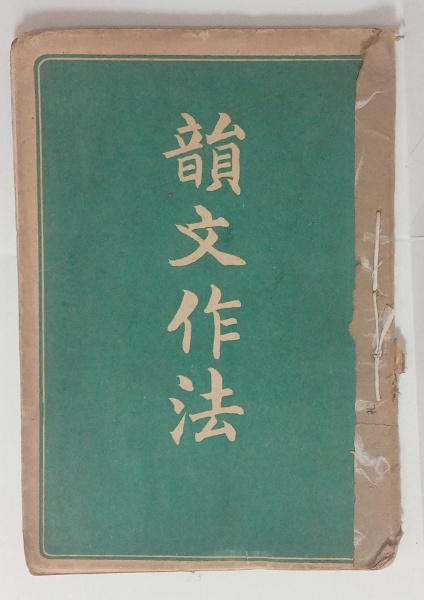 韻文作法